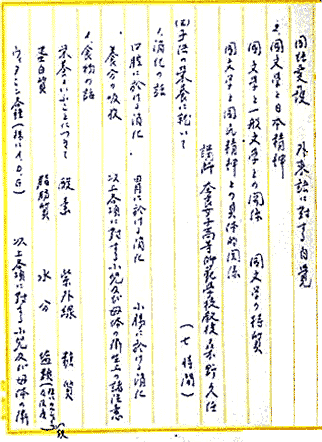 国語愛護　外来語に対する自覚
2、国文学と日本精神
国文学と一般文学との関係　国文学の特質
国文学と国民精神との具体的関係
(五)子供の栄養に就いて　(七時間)
講師　奈良女子高等師範学校教授　野久任
1、消化の話
口腔に於ける消化　胃に於ける消化　小腸に於ける消化
養分の吸收　以上各項に対する小児及び母体の衛生上の諸注意
2、食物の話
栄養といふことにつきて　酸素　紫外線　糖質
蛋白質　脂肪質　水分　塩類
ヴィタミン各種　以上各項に対する小児及び母体の衛